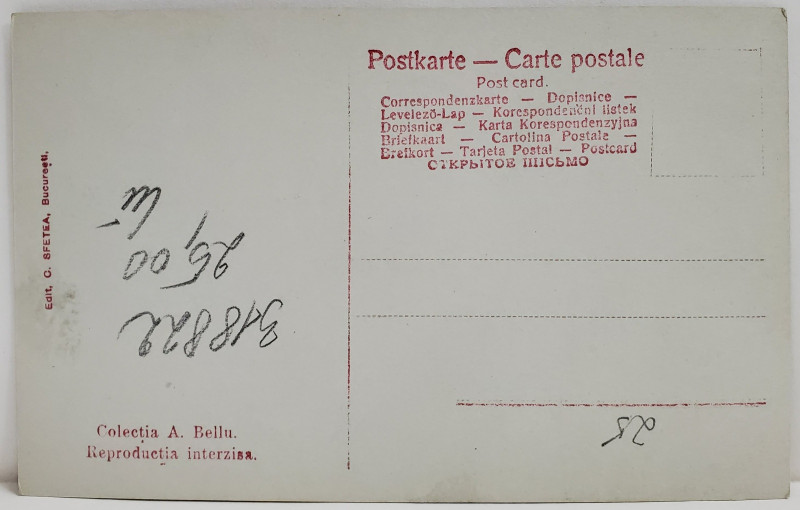 Postkarte — Carte postale
Post card.
Correspondenzkarte — Dopisnice —
Levelező-Lap — Korespondenčni listek
Dopisnica — Karta Korespondenzyjna
Briefkaart — Cartolina Postale —
Brefkort — Tarjeta Postal — Postcard
ОТКРЫТОЕ ПИСЬМО
Edit. C. SFETEA, București.
318822
25,00
lei
Colecția A. Bellu.
Reproducția interzisa.
25